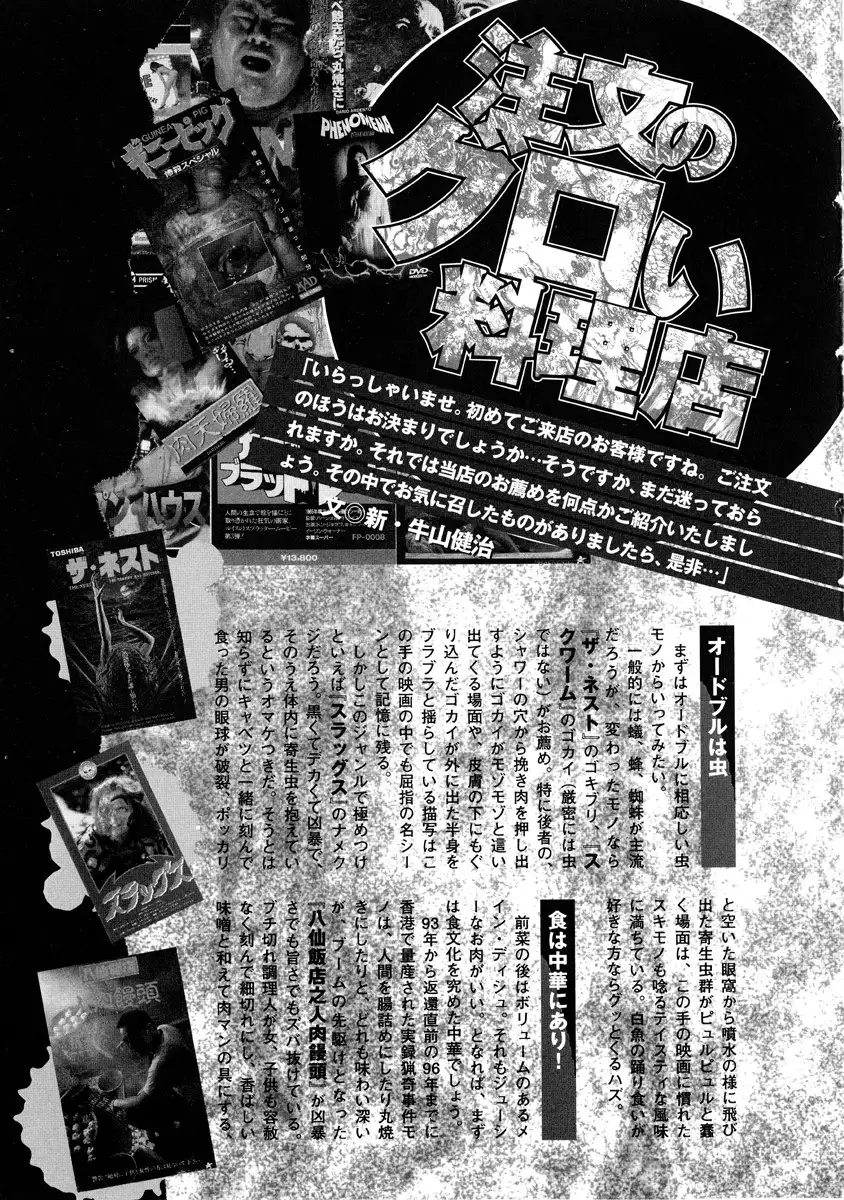 注文の
グロい
料理店
「いらっしゃいませ。初めてご来店のお客様ですね。ご注文
のほうはお決まりでしょうか…そうですか、まだ迷っておら
れますか。それでは当店のお薦めを何点かご紹介いたしまし
ょう。その中でお気に召したものがありましたら、是非…」
文◎新・牛山健治
オードブルは虫
まずはオードブルに相応しい虫
モノからいってみたい。
一般的には蟻、蜂、蜘蛛が主流
だろうが、変わったモノなら
『ザ・ネスト』のゴキブリ、『ス
クワーム』のゴカイ（厳密には虫
ではない）がお薦め。特に後者の、
シャワーの穴から挽き肉を押し出
すようにゴカイがモゾモゾと這い
出てくる場面や、皮膚の下にもぐ
り込んだゴカイが外に出た半身を
ブラブラと揺らしている描写はこ
の手の映画の中でも屈指の名シー
ンとして記憶に残る。
しかしこのジャンルで極めつけ
といえば『スラッグス』のナメク
ジだろう。黒くてデカくて凶暴で、
そのうえ体内に寄生虫を抱えてい
るというオマケつきだ。そうとは
知らずにキャベツと一緒に刻んで
食った男の眼球が破裂、ポッカリ
と空いた眼窩から噴水の様に飛び
出た寄生虫群がピュルピュルと蠢
く場面は、この手の映画に慣れた
スキモノも唸るテイスティな風味
に満ちている。白魚の踊り食いが
好きな方ならグッとくるハズ。
食は中華にあり！
前菜の後はボリュームのあるメ
イン・ディシュ。それもジューシ
ーなお肉がいい。となれば、まず
は食文化を究めた中華でしょう。
93年から返還直前の96年までに
香港で量産された実録猟奇事件モ
ノは、人間を腸詰めにしたり丸焼
きにしたりと、どれも味わい深い
が、ブームの先駆けとなった
『八仙飯店之人肉饅頭』が凶暴
さでも旨さでもズバ抜けている。
ブチ切れ調理人が女、子供も容赦
なく刻んで細切れにし、香ばしい
味噌と和えて肉マンの具にする。
べ飽きたら、丸焼きに
GUINEA PIG
ギニーピッグ
惨殺スペシャル
DARIO ARGENTO
PHENOMENA
DVD
PRISM
MAD
肉天婦羅
ハウス
ブラッド
¥13,800
FP-0008
字幕スーパー
TOSHIBA
ザ・ネスト
スラッグス